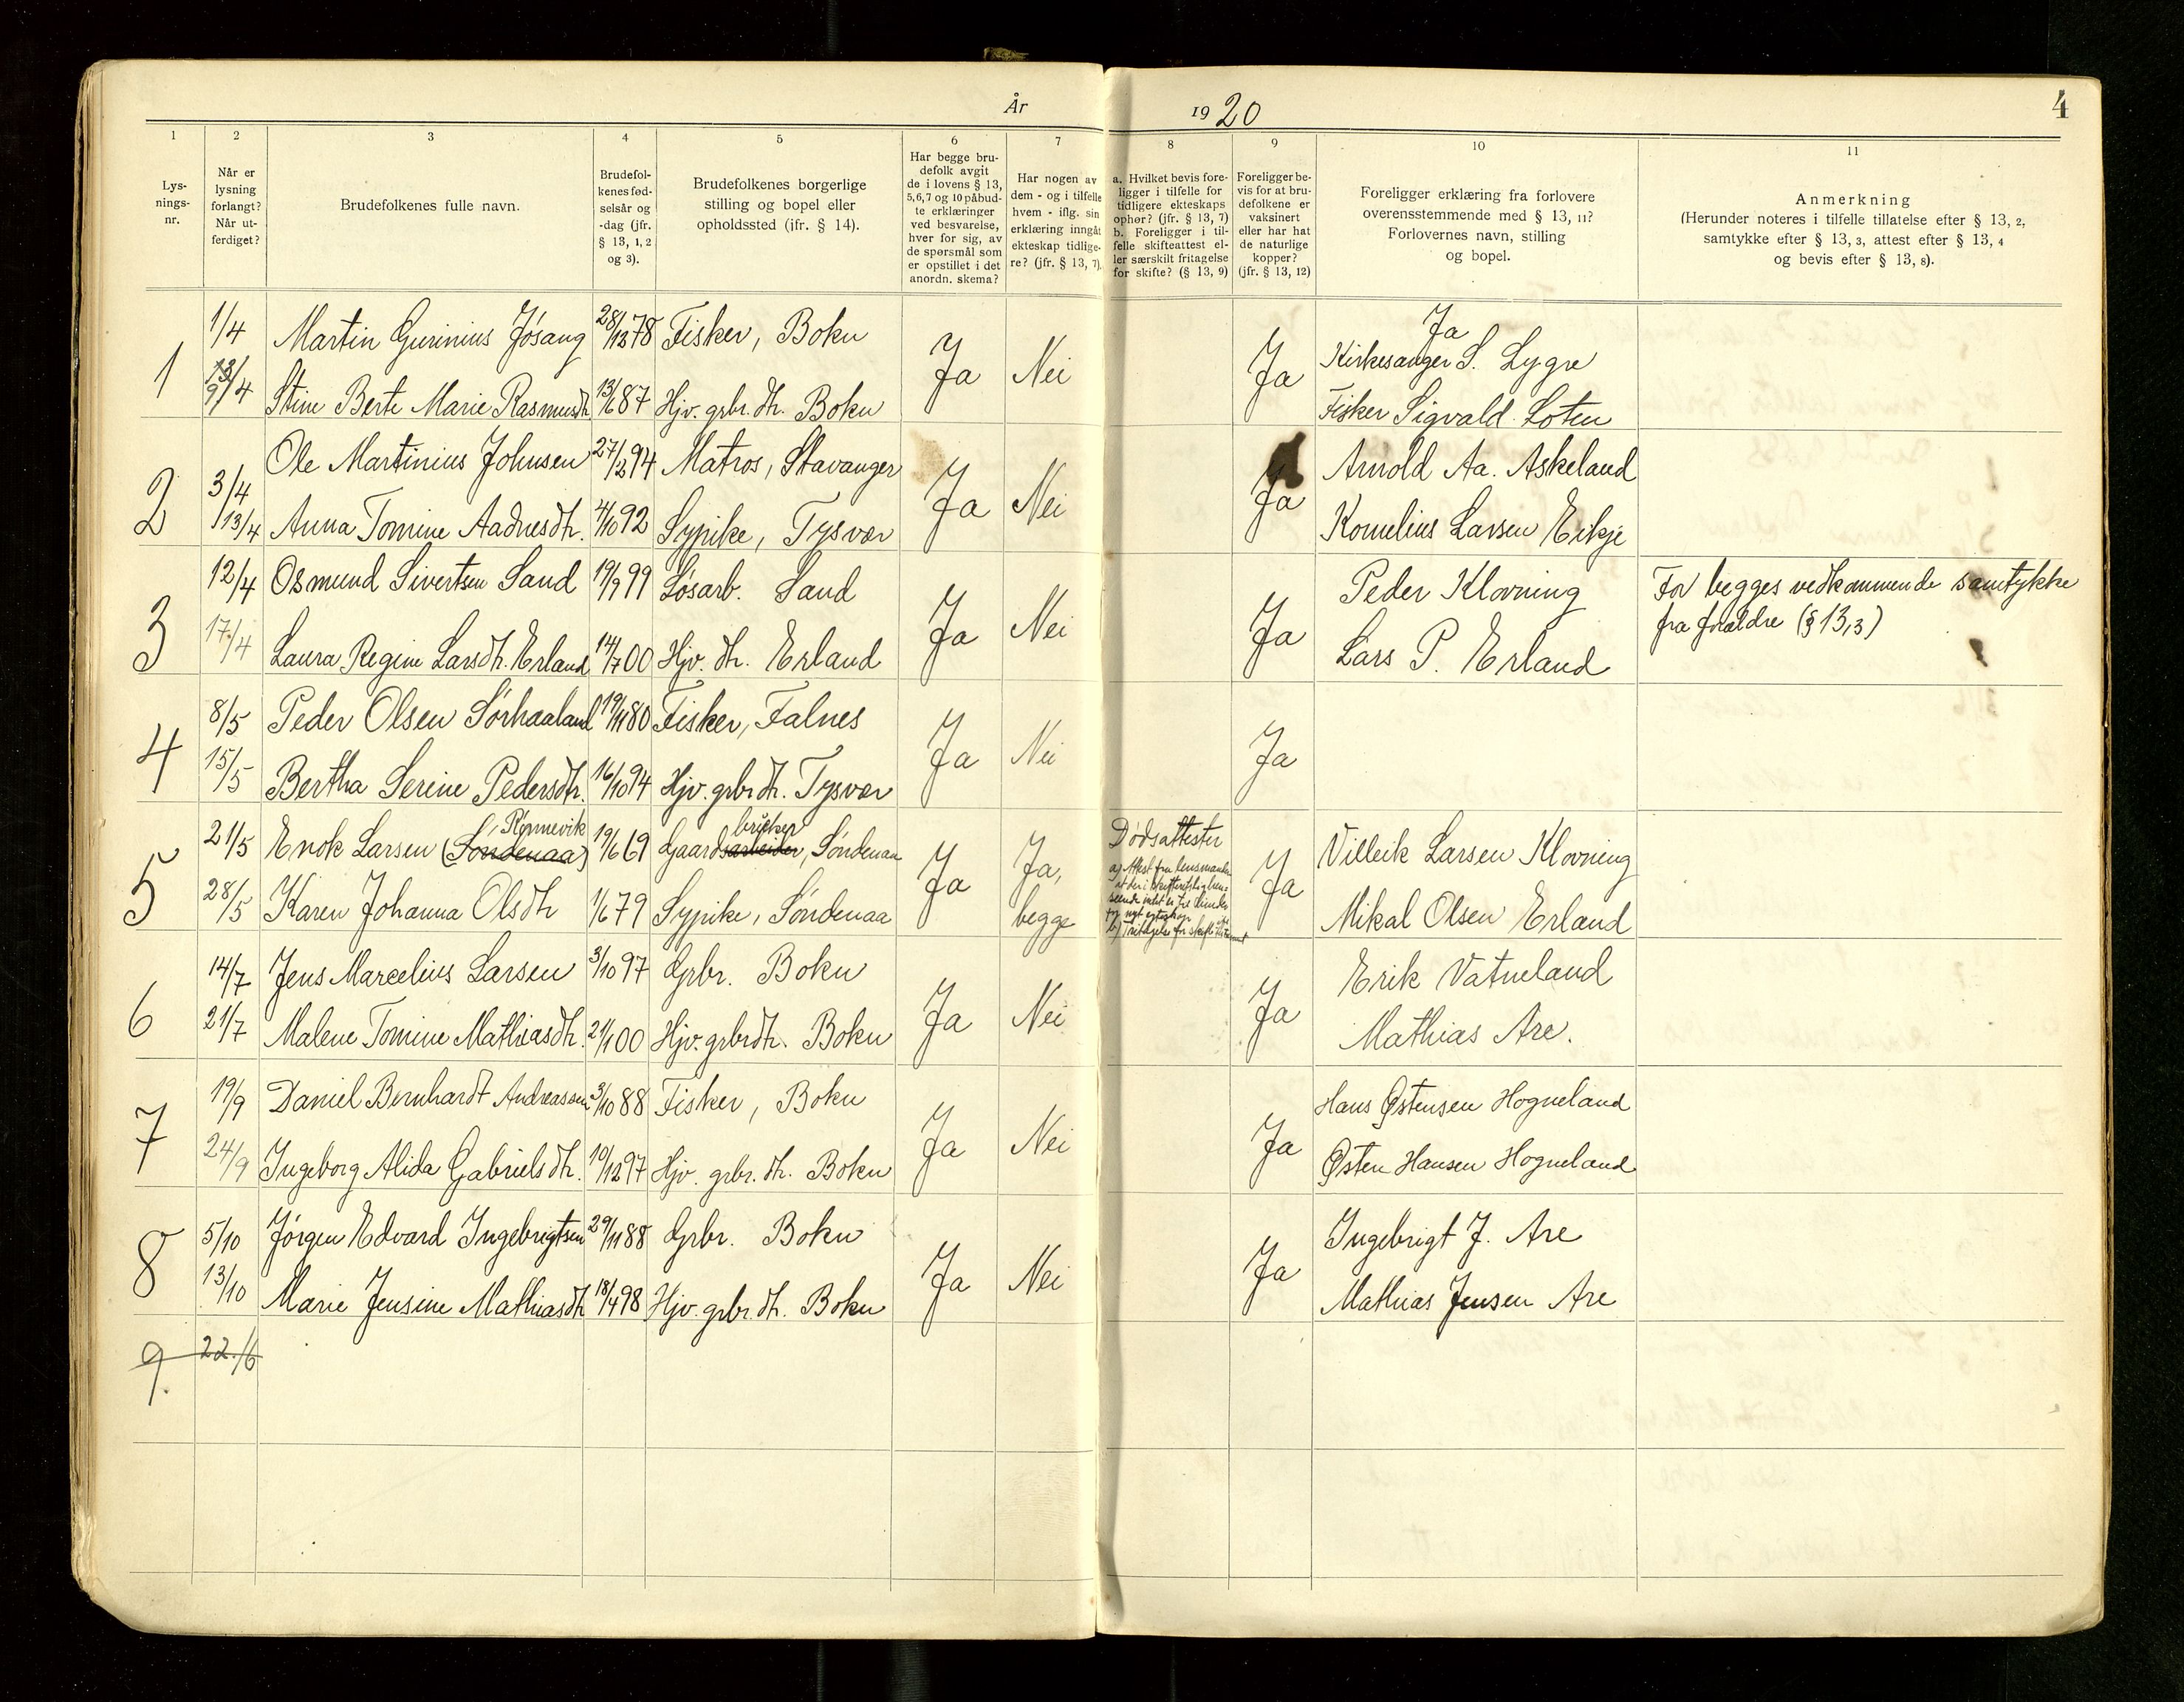 År 1920
4
1
Lys-
nings-
nr.
2
Når er
lysning
forlangt?
Når ut-
ferdiget?
3
Brudefolkenes fulle navn.
4
Brudefol-
kenes fød-
selsår og
-dag (jfr.
§ 13, 1, 2
og 3).
5
Brudefolkenes borgerlige
stilling og bopel eller
opholdssted (jfr. § 14).
6
Har begge bru-
defolk avgit
de i lovens § 13,
5,6,7 og 10 påbud-
te erklæringer
ved besvarelse,
hver for sig, av
de spørsmål som
er opstillet i det
anordn. skema?
7
Har nogen av
dem - og i tilfelle
hvem - iflg. sin
erklæring inngåt
ekteskap tidlige-
re? (jfr. § 13, 7).
8
a. Hvilket bevis fore-
ligger i tilfelle for
tidligere ekteskaps
ophør? (jfr. § 13, 7)
b. Foreligger i til-
felle skifteattest el-
ler særskilt fritagelse
for skifte? (§ 13, 9)
9
Foreligger be-
vis for at bru-
defolkene er
vaksinert
eller har hat
de naturlige
kopper?
(jfr. § 13, 12)
10
Foreligger erklæring fra forlovere
overensstemmende med § 13, 11?
Forlovernes navn, stilling
og bopel.
11
Anmerkning
(Herunder noteres i tilfelle tillatelse efter § 13, 2,
samtykke efter § 13, 3, attest efter § 13, 4
og bevis efter § 13, 8).
1
1/4 Martin Gurinius Jósang 28/12 78 Fisker, Bokn Ja Nei Ja Ja
Kirkesanger S. Lygre
9/4 Stine Berte Marie Rasmusdtr 13/6 87 Hjv. grbr. dtr. Bokn
Fisker Sigvald Loten
2
3/4 Ole Martinius Johnsen 27/2 94 Matros, Stavanger Ja Nei Ja Arnold Aa. Askeland
13/4 Anna Tomine Aadnesdtr. 4/10 92 Sypike, Tysvær Kornelius Larsen Eikje
3
12/4 Osmund Sivertsen Sand 19/9 99 Lösarb. Sand Ja Nei Ja Peder Klovning For begges vedkommende samtykke
fra forældre (§ 13,3)
17/4 Laura Regine Larsdtr. Erland 14/7 00 Hjv. dtr. Erland Lars P. Erland
4
8/5 Peder Olsen Sörhaaland 19/11 80 Fisker, Falnes Ja Nei Ja
15/5 Bertha Serine Pedersdtr. 16/10 94 Hjv. grbr dtr. Tysvær
5
Rönnevik
bruker
21/5 Enok Larsen (Söndenaa) 19/6 69 Gaardsarbeider, Söndenaa Ja Ja, begge Dödsattester Ja Villeik Larsen Klovning
a) Attest fra lensmanden
28/5 Karen Johanna Olsdtr 1/6 79 Sypike, Söndenaa Mikal Olsen Erland
6
14/7 Jens Marcelius Larsen 3/10 97 Grbr. Bokn Ja Nei Ja Erik Vatneland
21/7 Malene Tomine Mathiasdtr. 21/1 00 Hjv. grbrdtr. Bokn Mathias Are.
7
19/9 Daniel Bernhardt Andreassen 3/10 88 Fisker, Bokn Ja Nei Ja Hans Østensen Hogneland
24/9 Ingeborg Alida Gabrielsdtr. 10/12 97 Hjv. grbr. dtr. Bokn Østen Hansen Hogneland
8
5/10 Jörgen Edvard Ingebrigtsen 29/11 88 Grbr. Bokn Ja Nei Ja Ingebrigt J. Are
13/10 Marie Jensine Mathiasdtr 18/4 98 Hjv. grbr. dtr. Bokn Mathias Jensen Are
9. 22/6